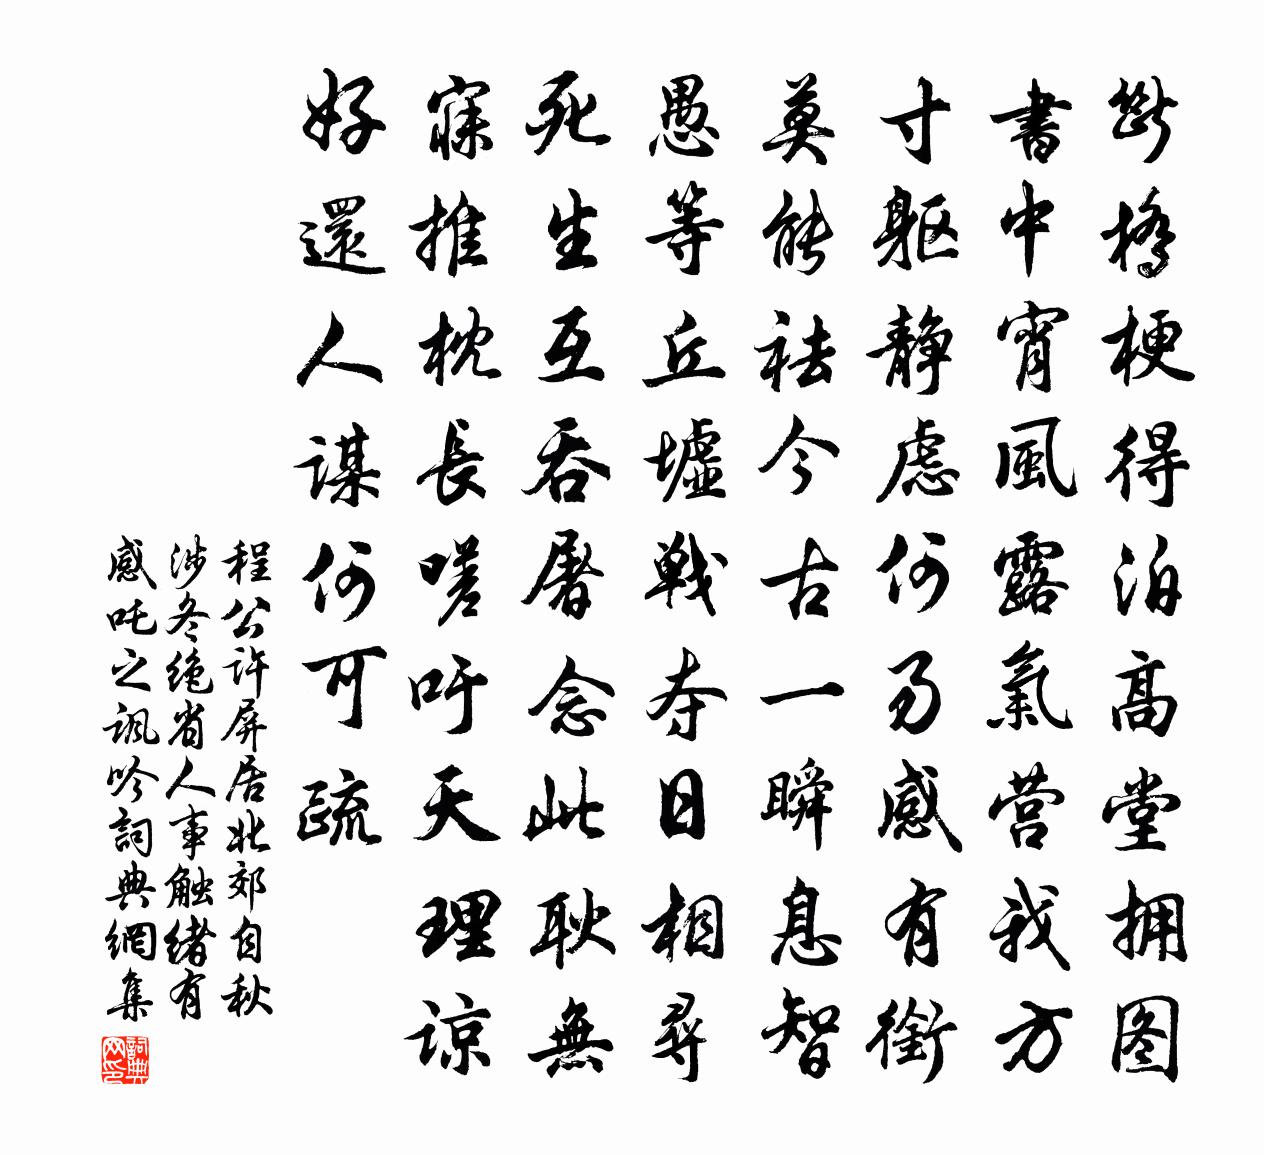 斷橋梗得泊高堂拥图
書中宵風露氣营我方
寸躯静慮何易感有銜
莫能祛今古一瞬息智
愚等丘墟戰夺日相尋
死生互吞屠念此耿無
寐推枕長嗟吁天理谅
好還人谋何可疏
程公许屏居北郊自秋
涉冬绝省人事触緒有
感吒之讽吟詞典網集
詞典网印